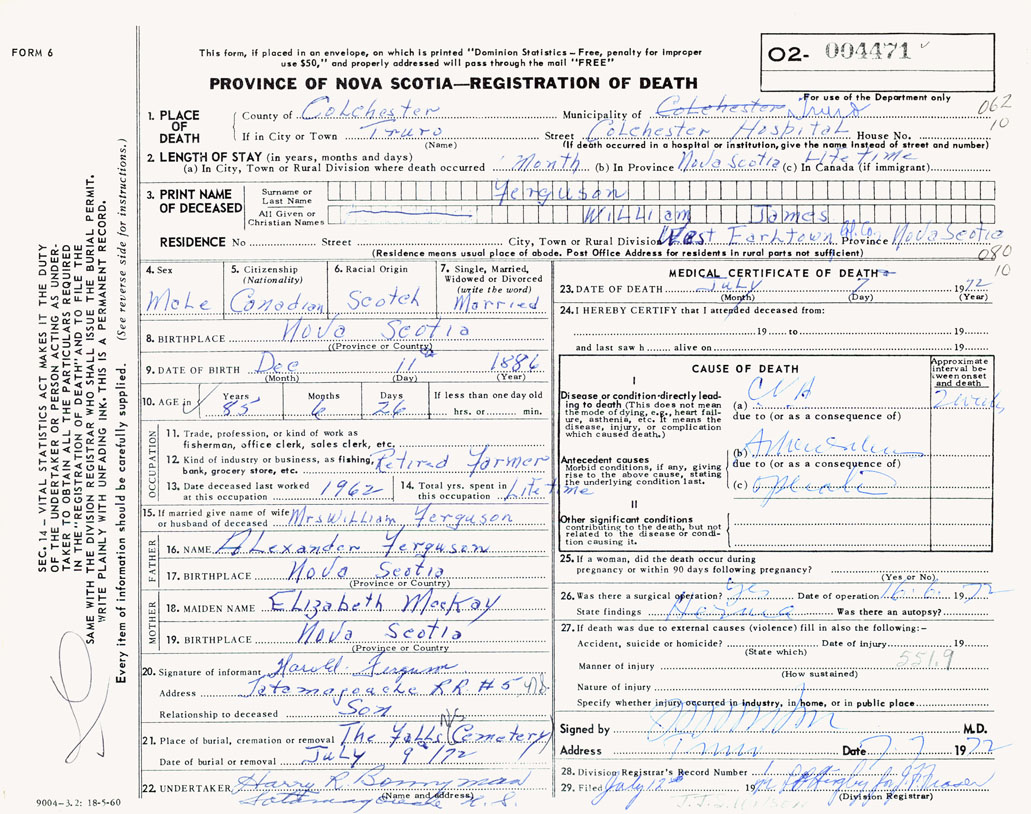 FORM 6
This form, if placed in an envelope, on which is printed "Dominion Statistics – Free, penalty for improper
use $50," and properly addressed will pass through the mail "FREE"
O2- 004471
PROVINCE OF NOVA SCOTIA—REGISTRATION OF DEATH
For use of the Department only
062
10
1. PLACE OF DEATH
County of Colchester Municipality of Colchester Truro
If in City or Town Truro Street Colchester Hospital House No.
(Name) (If death occurred in a hospital or institution, give the name instead of street and number)
2. LENGTH OF STAY (in years, months and days)
(a) In City, Town or Rural Division where death occurred 1 Month (b) In Province Nova Scotia (c) In Canada (if immigrant) Life time
3. PRINT NAME OF DECEASED
Surname or Last Name Ferguson
All Given or Christian Names William James
RESIDENCE No Street City, Town or Rural Division West Earltown Col. Co. Province Nova Scotia
(Residence means usual place of abode. Post Office Address for residents in rural parts not sufficient)
080
10
4. Sex Male
5. Citizenship (Nationality) Canadian
6. Racial Origin Scotch
7. Single, Married, Widowed or Divorced (write the word) Married
8. BIRTHPLACE Nova Scotia
(Province or Country)
9. DATE OF BIRTH Dec 11 1886
(Month) (Day) (Year)
10. AGE in Years 85 Months 6 Days 26 If less than one day old hrs. or min.
OCCUPATION
11. Trade, profession, or kind of work as fisherman, office clerk, sales clerk, etc.
12. Kind of industry or business, as fishing, bank, grocery store, etc. Retired Farmer
13. Date deceased last worked at this occupation 1962
14. Total yrs. spent in this occupation Life time
15. If married give name of wife or husband of deceased Mrs William Ferguson
FATHER
16. NAME Alexander Ferguson
17. BIRTHPLACE Nova Scotia
(Province or Country)
MOTHER
18. MAIDEN NAME Elizabeth MacKay
19. BIRTHPLACE Nova Scotia
(Province or Country)
20. Signature of informant Harold Ferguson
Address Tatamagouche RR #5 N.S.
Relationship to deceased Son
21. Place of burial, cremation or removal The Falls Cemetery N/S
Date of burial or removal July 9 /72
22. UNDERTAKER Harry R Bonnyman
(Name and address)
Tatamagouche N. S.
9004–3.2: 18-5-60
MEDICAL CERTIFICATE OF DEATH
23. DATE OF DEATH July 7 1972
(Month) (Day) (Year)
24. I HEREBY CERTIFY that I attended deceased from:
19 to 19
and last saw h alive on 19
CAUSE OF DEATH
Approximate interval between onset and death
I
Disease or condition directly leading to death (This does not mean the mode of dying, e.g., heart failure, asthenia, etc. It means the disease, injury, or complication which caused death.)
(a) CVA 2 weeks
due to (or as a consequence of)
Antecedent causes
Morbid conditions, if any, giving rise to the above cause, stating the underlying condition last.
(b)
due to (or as a consequence of)
(c)
II
Other significant conditions
contributing to the death, but not related to the disease or condition causing it.
25. If a woman, did the death occur during pregnancy or within 90 days following pregnancy?
(Yes or No)
26. Was there a surgical operation? Yes Date of operation 16.6. 1972
State findings Hernia Was there an autopsy?
27. If death was due to external causes (violence) fill in also the following:–
Accident, suicide or homicide? Date of injury 19
(State which)
551.9
Manner of injury
(How sustained)
Nature of injury
Specify whether injury occurred in industry, in home, or in public place
Signed by M.D.
Address Truro Date 7.7 1972
28. Division Registrar's Record Number
29. Filed July 12th 19
(Division Registrar)
SEC. 14 – VITAL STATISTICS ACT MAKES IT THE DUTY
OF THE UNDERTAKER OR PERSON ACTING AS UNDER-
TAKER TO OBTAIN ALL THE PARTICULARS REQUIRED
IN THE "REGISTRATION OF DEATH" AND TO FILE THE
SAME WITH THE DIVISION REGISTRAR WHO SHALL ISSUE THE BURIAL PERMIT.
WRITE PLAINLY WITH UNFADING INK. THIS IS A PERMANENT RECORD.
Every item of information should be carefully supplied. (See reverse side for instructions.)